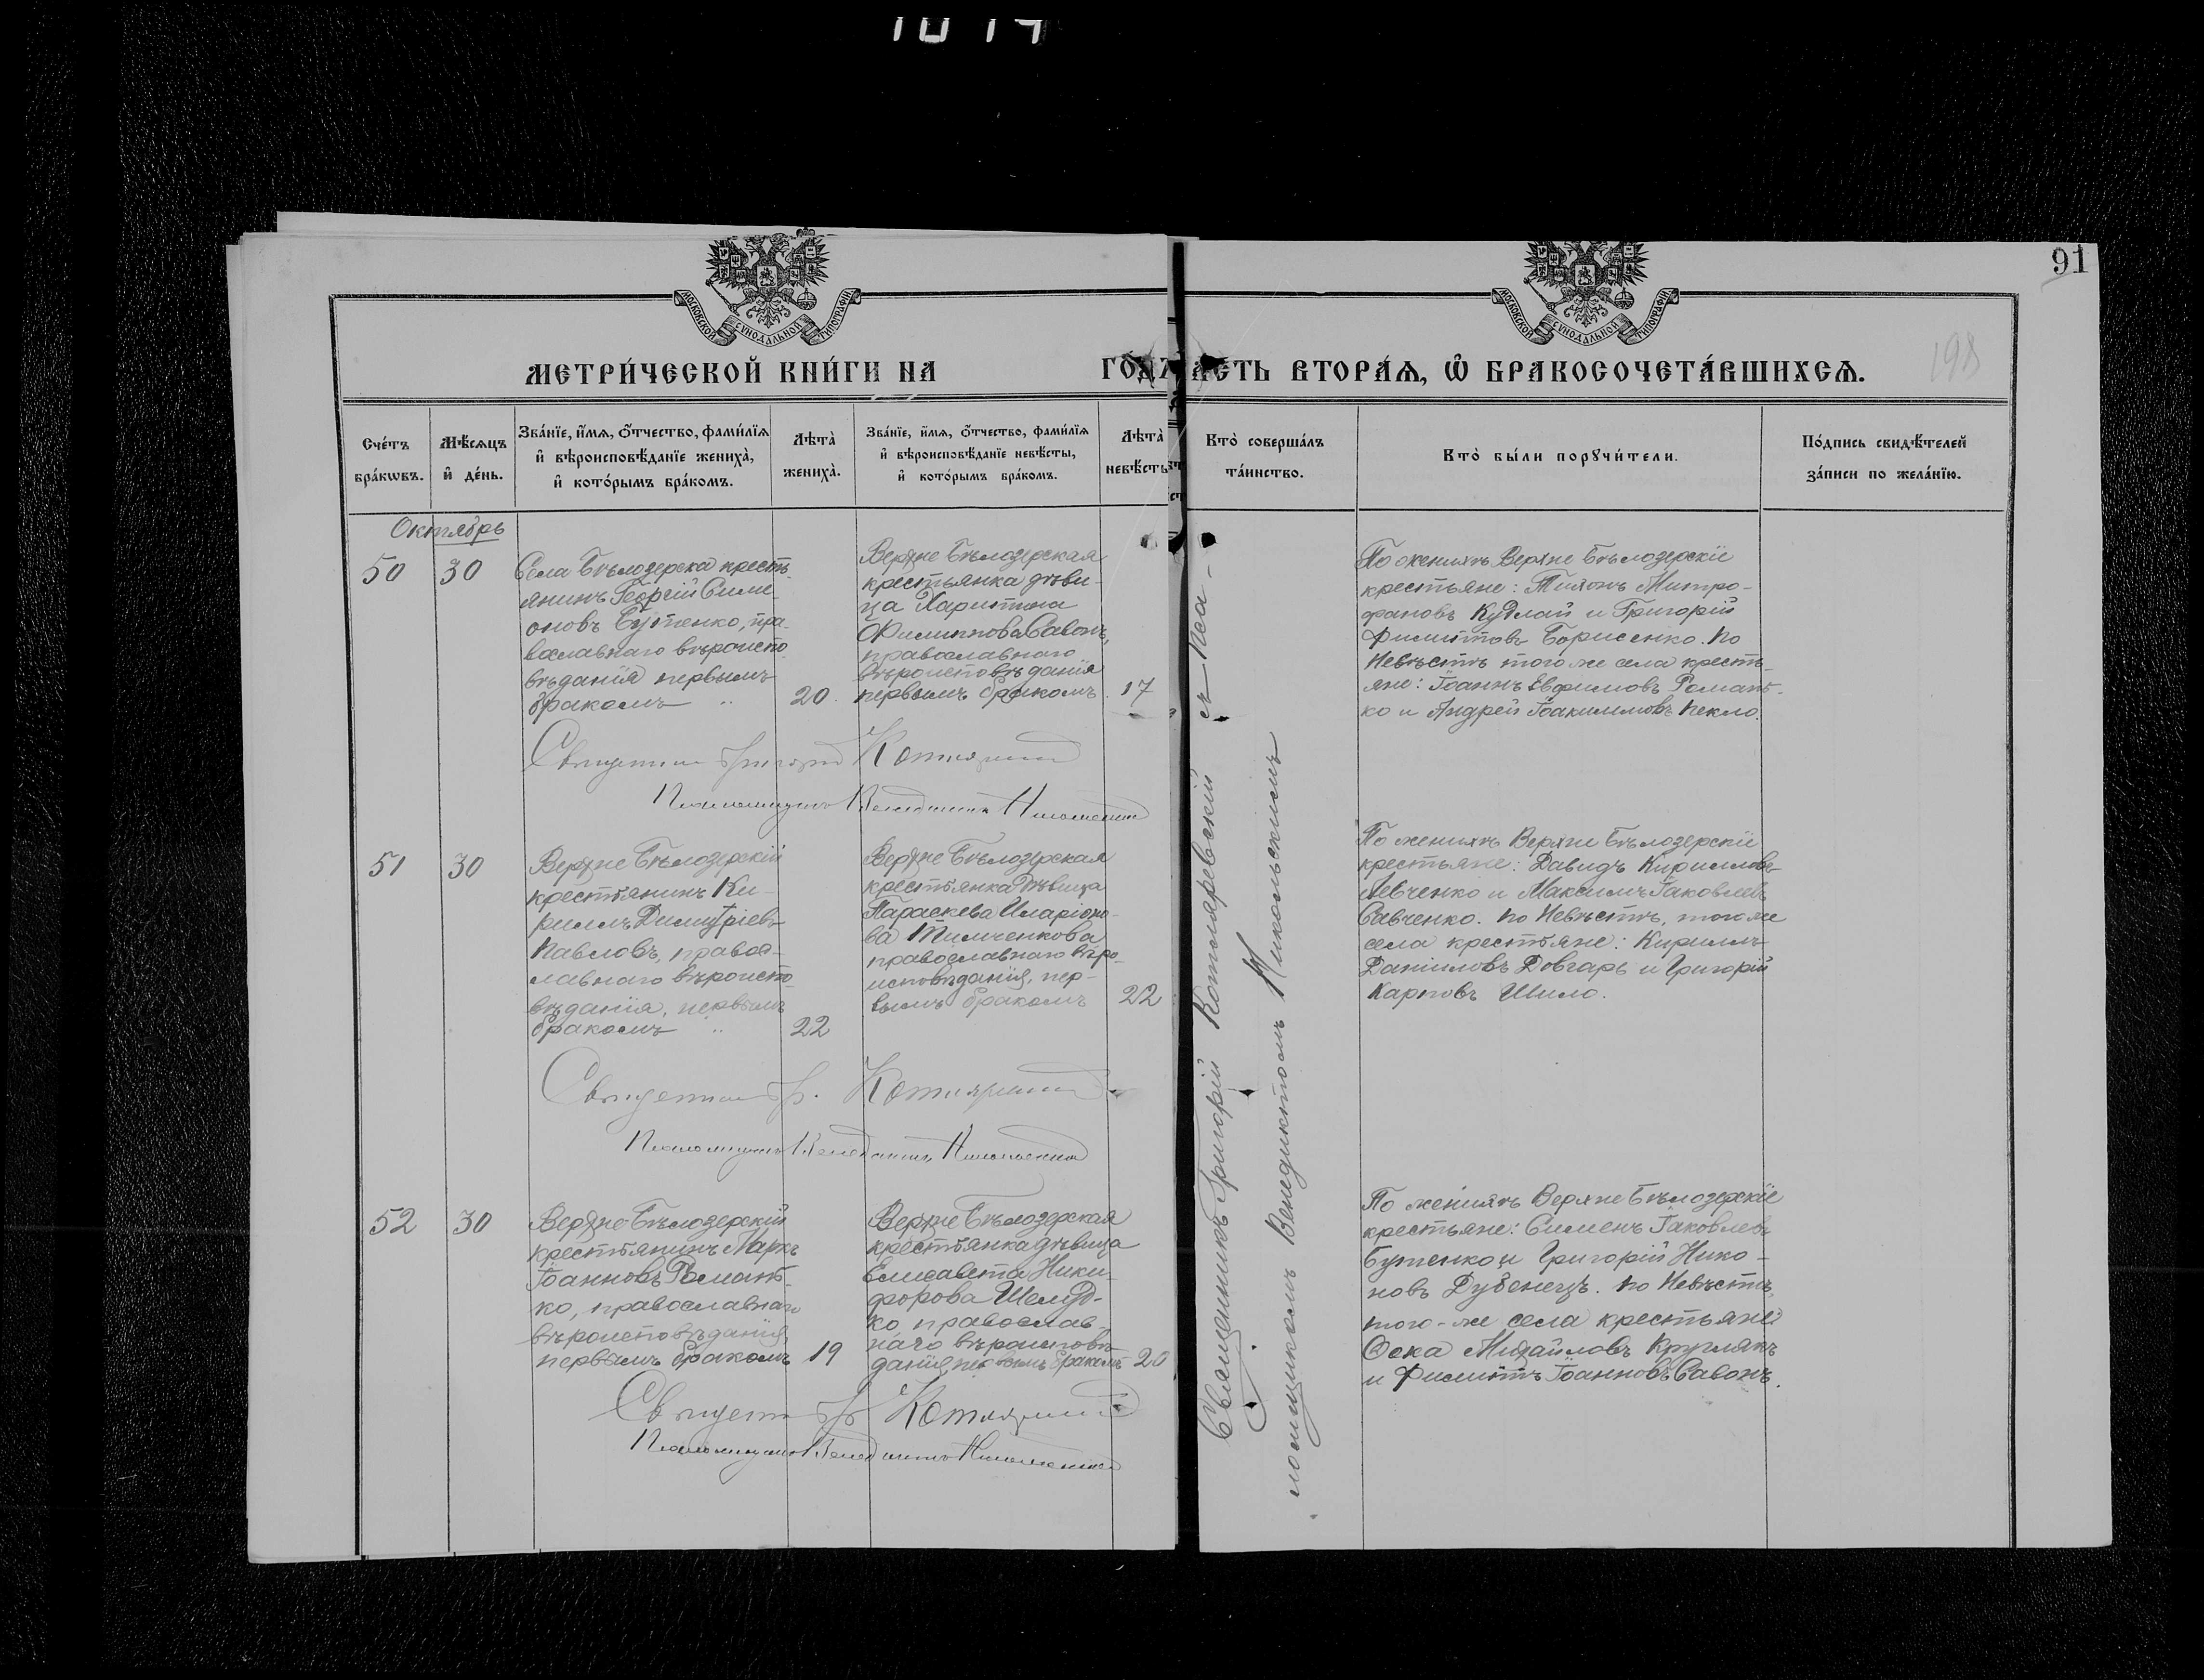 1014
91
198
МОСКОВСКОЙ СѴНОДАЛЬНОЙ ТИПОГРАФІИ
МОСКОВСКОЙ СѴНОДАЛЬНОЙ ТИПОГРАФІИ
МЕТРИ́ЧЕСКОЙ КНИ́ГИ НА ГО́ДЪ
ЧАСТЬ ВТОРА́Ѧ, Ѽ БРАКОСОЧЕТА́ВШИХСѦ.
Сче́тъ бра́кѡвъ.
Мѣ́сяцъ и҆ де́нь.
Зва́нїе, и҆́мѧ, ѻ҆́тчество, фами́лїѧ
и҆ вѣроисповѣ́данїе жениха̀,
и҆ кото́рымъ бра́комъ.
Лѣта̀ жениха̀.
Зва́нїе, и҆́мѧ, ѻ҆́тчество, фами́лїѧ
и҆ вѣроисповѣ́данїе невѣ́сты,
и҆ кото́рымъ бра́комъ.
Лѣта̀ невѣ́сты
Кто̀ соверша́лъ
та́инство.
Кто̀ бы́ли порꙋчи́тели.
По́дпись свидѣ́телей
за́писи по жела́нїю.
Октябрь
50
30
Села Бѣлозерка кресть-
янинъ Георгій Симе-
оновъ Бутенко, пра-
вославнаго вѣроиспо-
вѣданія первымъ
бракомъ "
20.
Верхне Бѣлозерская
крестьянка дѣви-
ца Харитина
Филиппова Савонъ,
православнаго
вѣроисповѣданія
первымъ бракомъ.
17
По женихѣ Верхне Бѣлозерскіе
крестьяне: Тихонъ Митро-
фановъ Кудлай и Григорій
Филипповъ Борисенко. По
Невѣстѣ того же села кресть-
яне: Іоаннъ Евфимовъ Романь-
ко и Андрей Іоакимовъ Пекло.
Священникъ Григорій Котляревскій
Псаломщикъ Венедиктъ Никольскій
51
30
Верхне Бѣлозерскій
крестьянинъ Ки-
риллъ Димитріевъ
Павловъ, правос-
лавнаго вѣроиспо-
вѣданія, первымъ
бракомъ "
22
Верхне Бѣлозерская
крестьянка дѣвица
Параскева Иларіоно-
ва Тимченкова
православнаго вѣро-
исповѣданія, пер-
вымъ бракомъ
22
По женихѣ Верхне Бѣлозерскіе
крестьяне: Давидъ Кирилловъ
Левченко и Максимъ Іаковлевъ
Савченко. По Невѣстѣ, того же
села крестьяне: Кириллъ
Даніиловъ Довгарь и Григорій
Карповъ Шило.
Священникъ Гр. Котляревскій
Псаломщикъ Венедиктъ Никольскій
52
30
Верхне-Бѣлозерскій
крестьянинъ Маркъ
Іоанновъ Романь-
ко, православнаго
вѣроисповѣданія,
первымъ бракомъ
19
Верхне Бѣлозерская
крестьянка дѣвица
Елисавета Ники-
форова Шелуд-
ко православ-
наго вѣроисповѣ-
данія, первымъ бракомъ
20
По женихѣ Верхне Бѣлозерскіе
крестьяне: Сименъ Іаковлевъ
Бутенко и Григорій Нико-
новъ Дубенецъ. По Невѣстѣ
того-же села крестьяне:
Ѳока Михайловъ Круглякъ
и Филиппъ Іоанновъ Савонъ.
Священникъ Гр Котляревскій
Псаломщикъ Венедиктъ Никольскій
Священникъ Григорій Котляревскій съ Пса-
ломщикомъ Венедиктомъ Никольскимъ